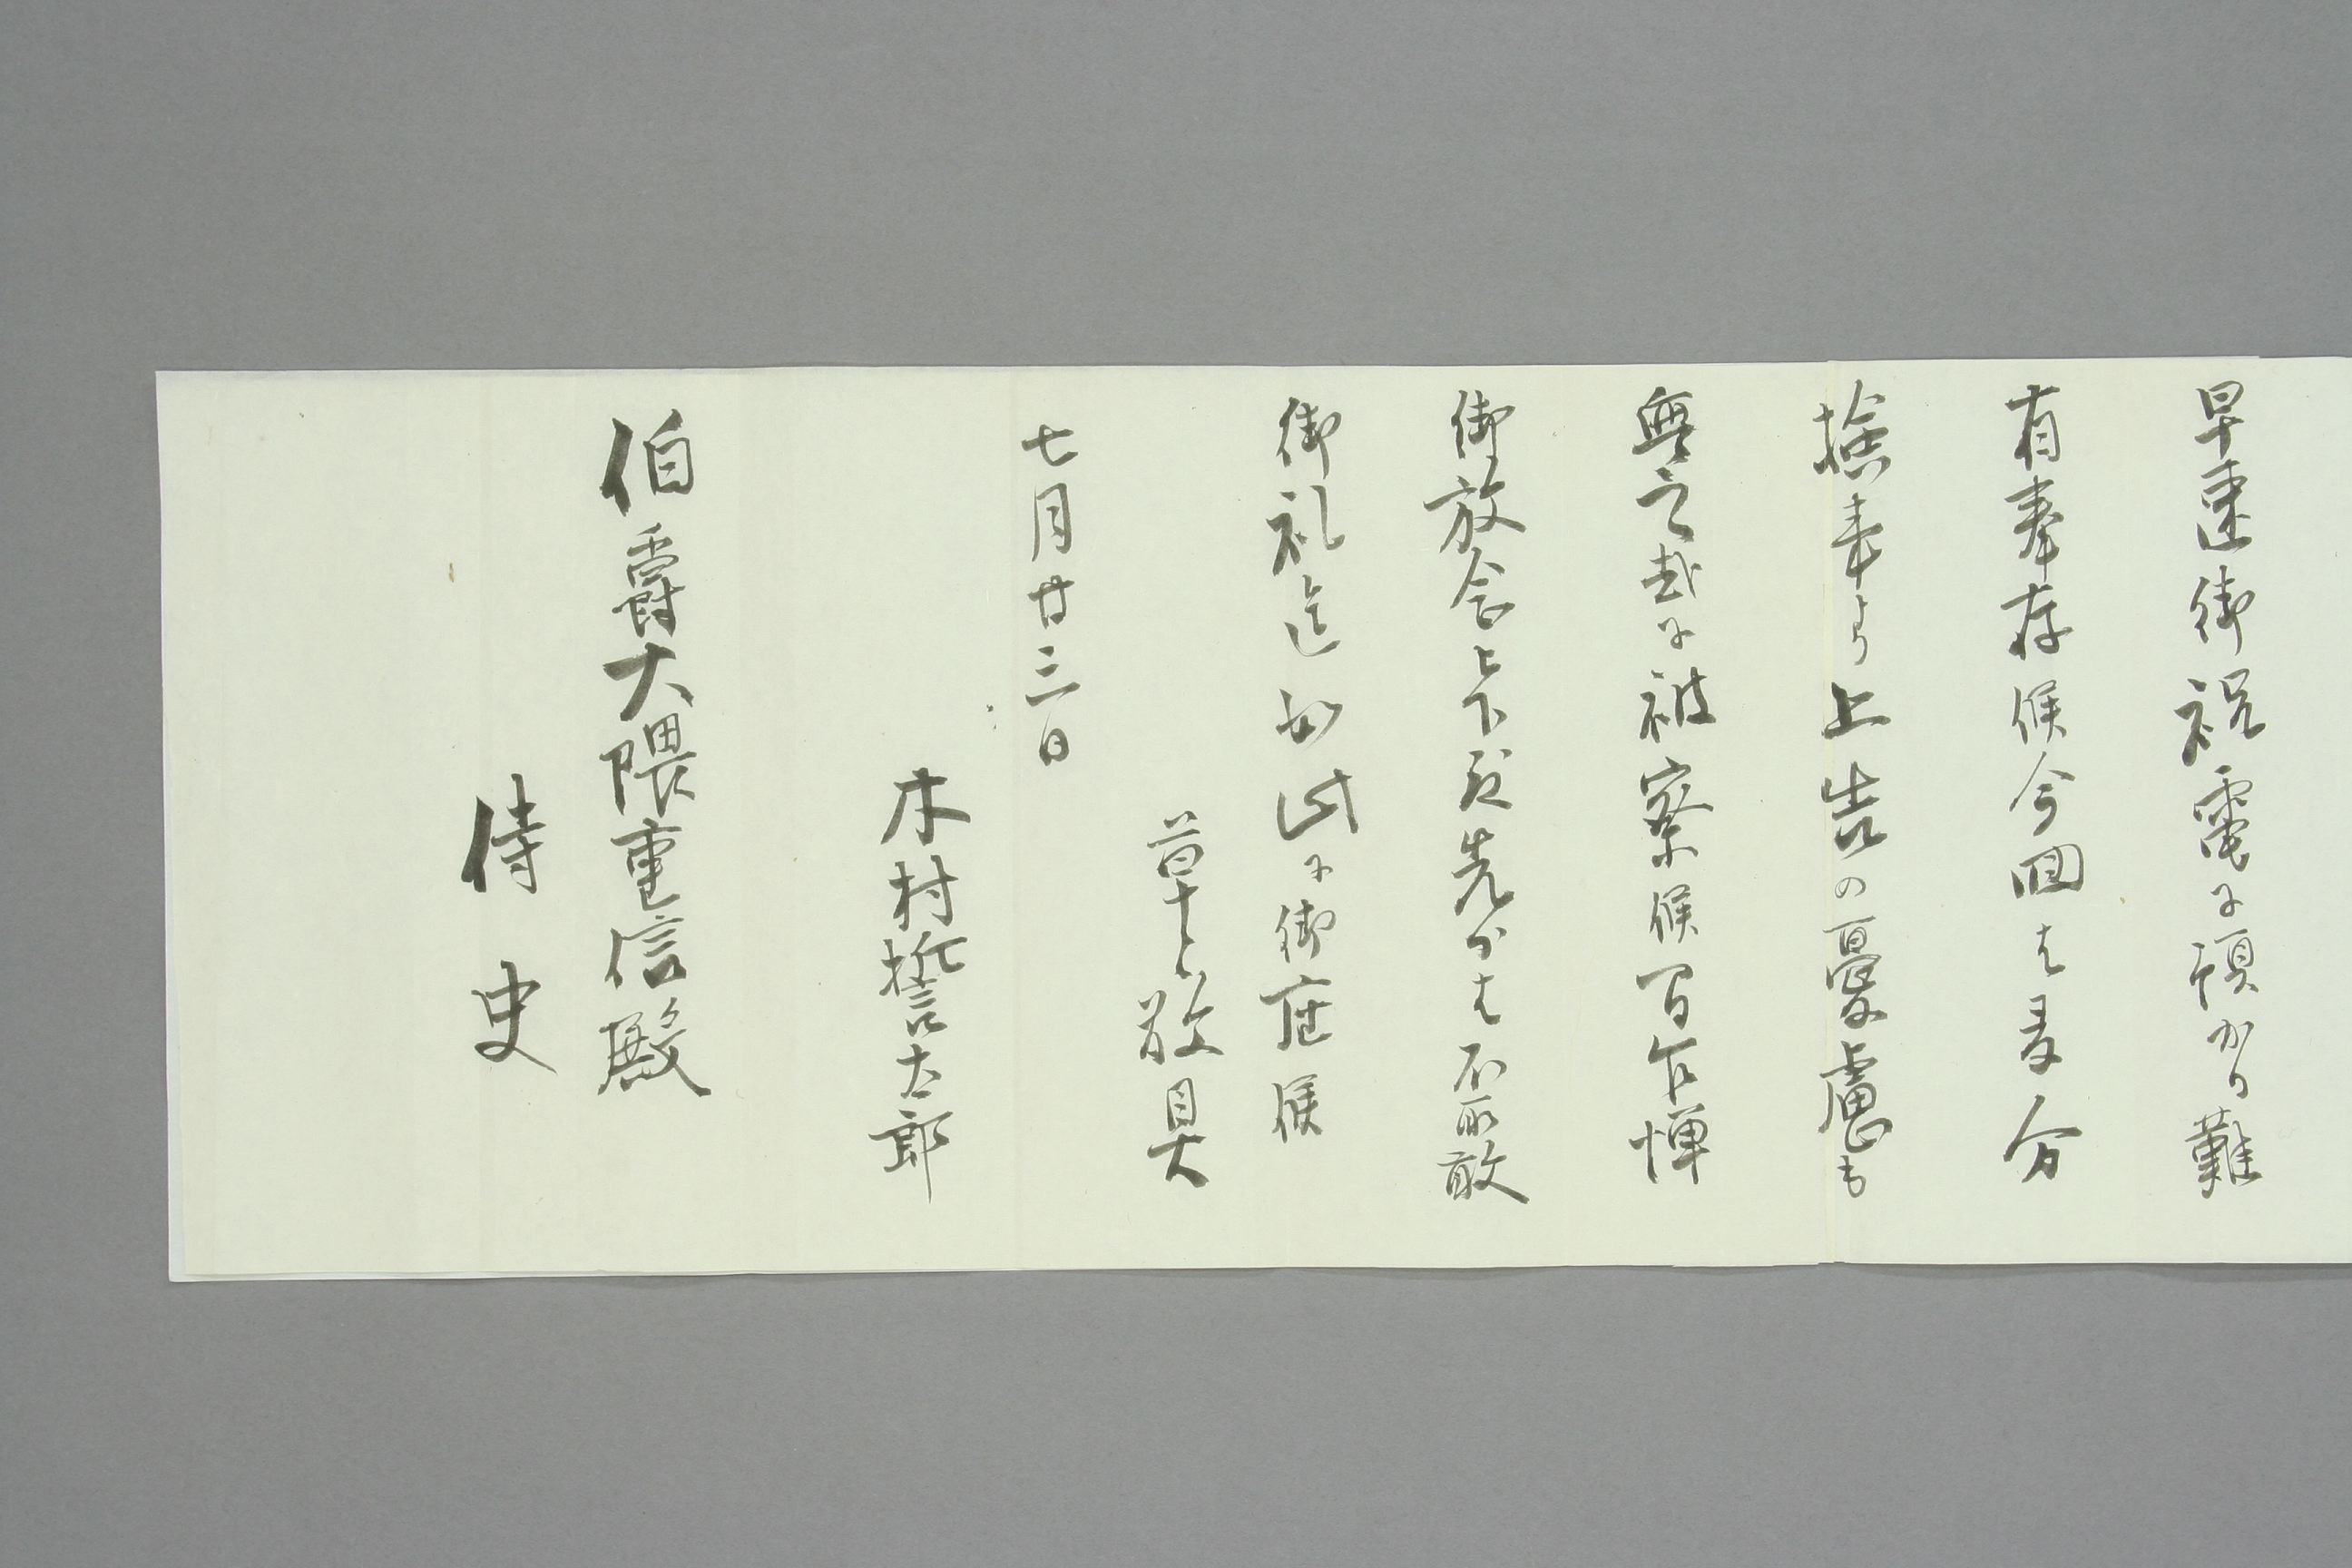 早速御祝電に預かり難
有奉存候今回は多分
検事より上告の憂慮も
無之哉に被察候間乍憚
御放念被下度先かは不取敢
御礼迄如此に御座候
草々敬具
七月廿三日
木村誓太郎
伯爵大隈重信殿
侍史